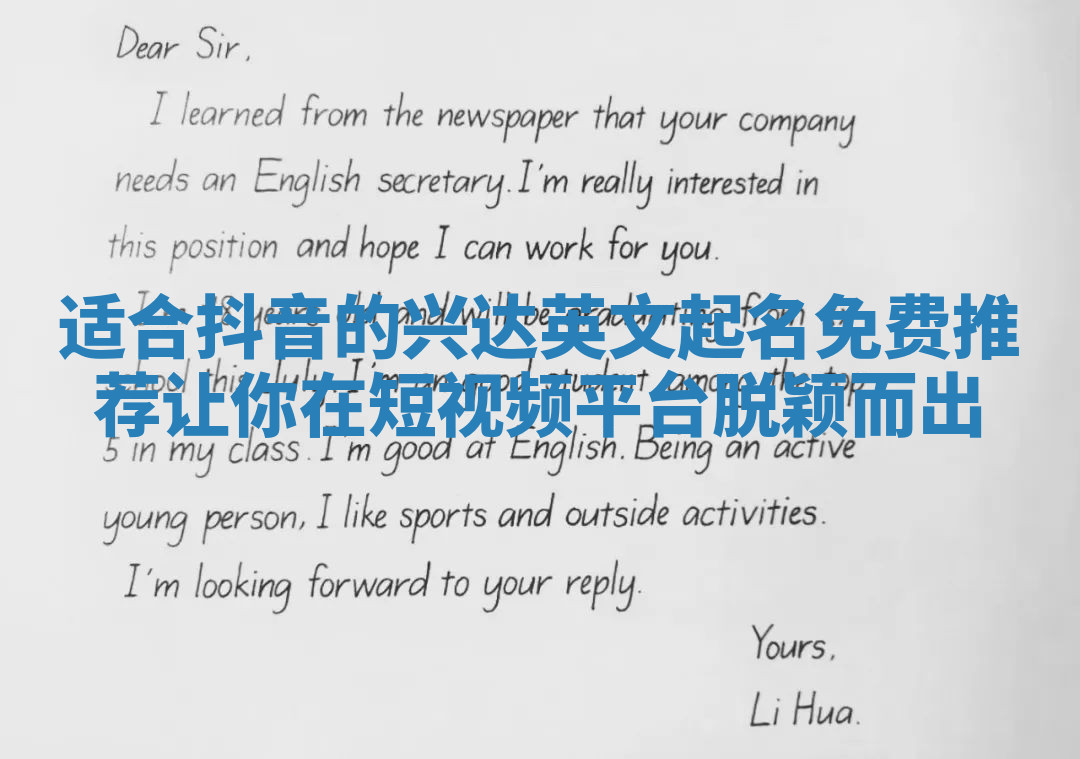 Dear Sir,
I learned from the newspaper that your company
needs an English secretary. I'm really interested in
this position and hope I can work for you.
适合抖音的兴达英文起名免费推
荐让你在短视频平台脱颖而出
18 years old and will be graduating from
school this July. I'm good student among the top
5 in my class. I'm good at English. Being an active
young person, I like sports and outside activities.
I'm looking forward to your reply.
Yours,
Li Hua.